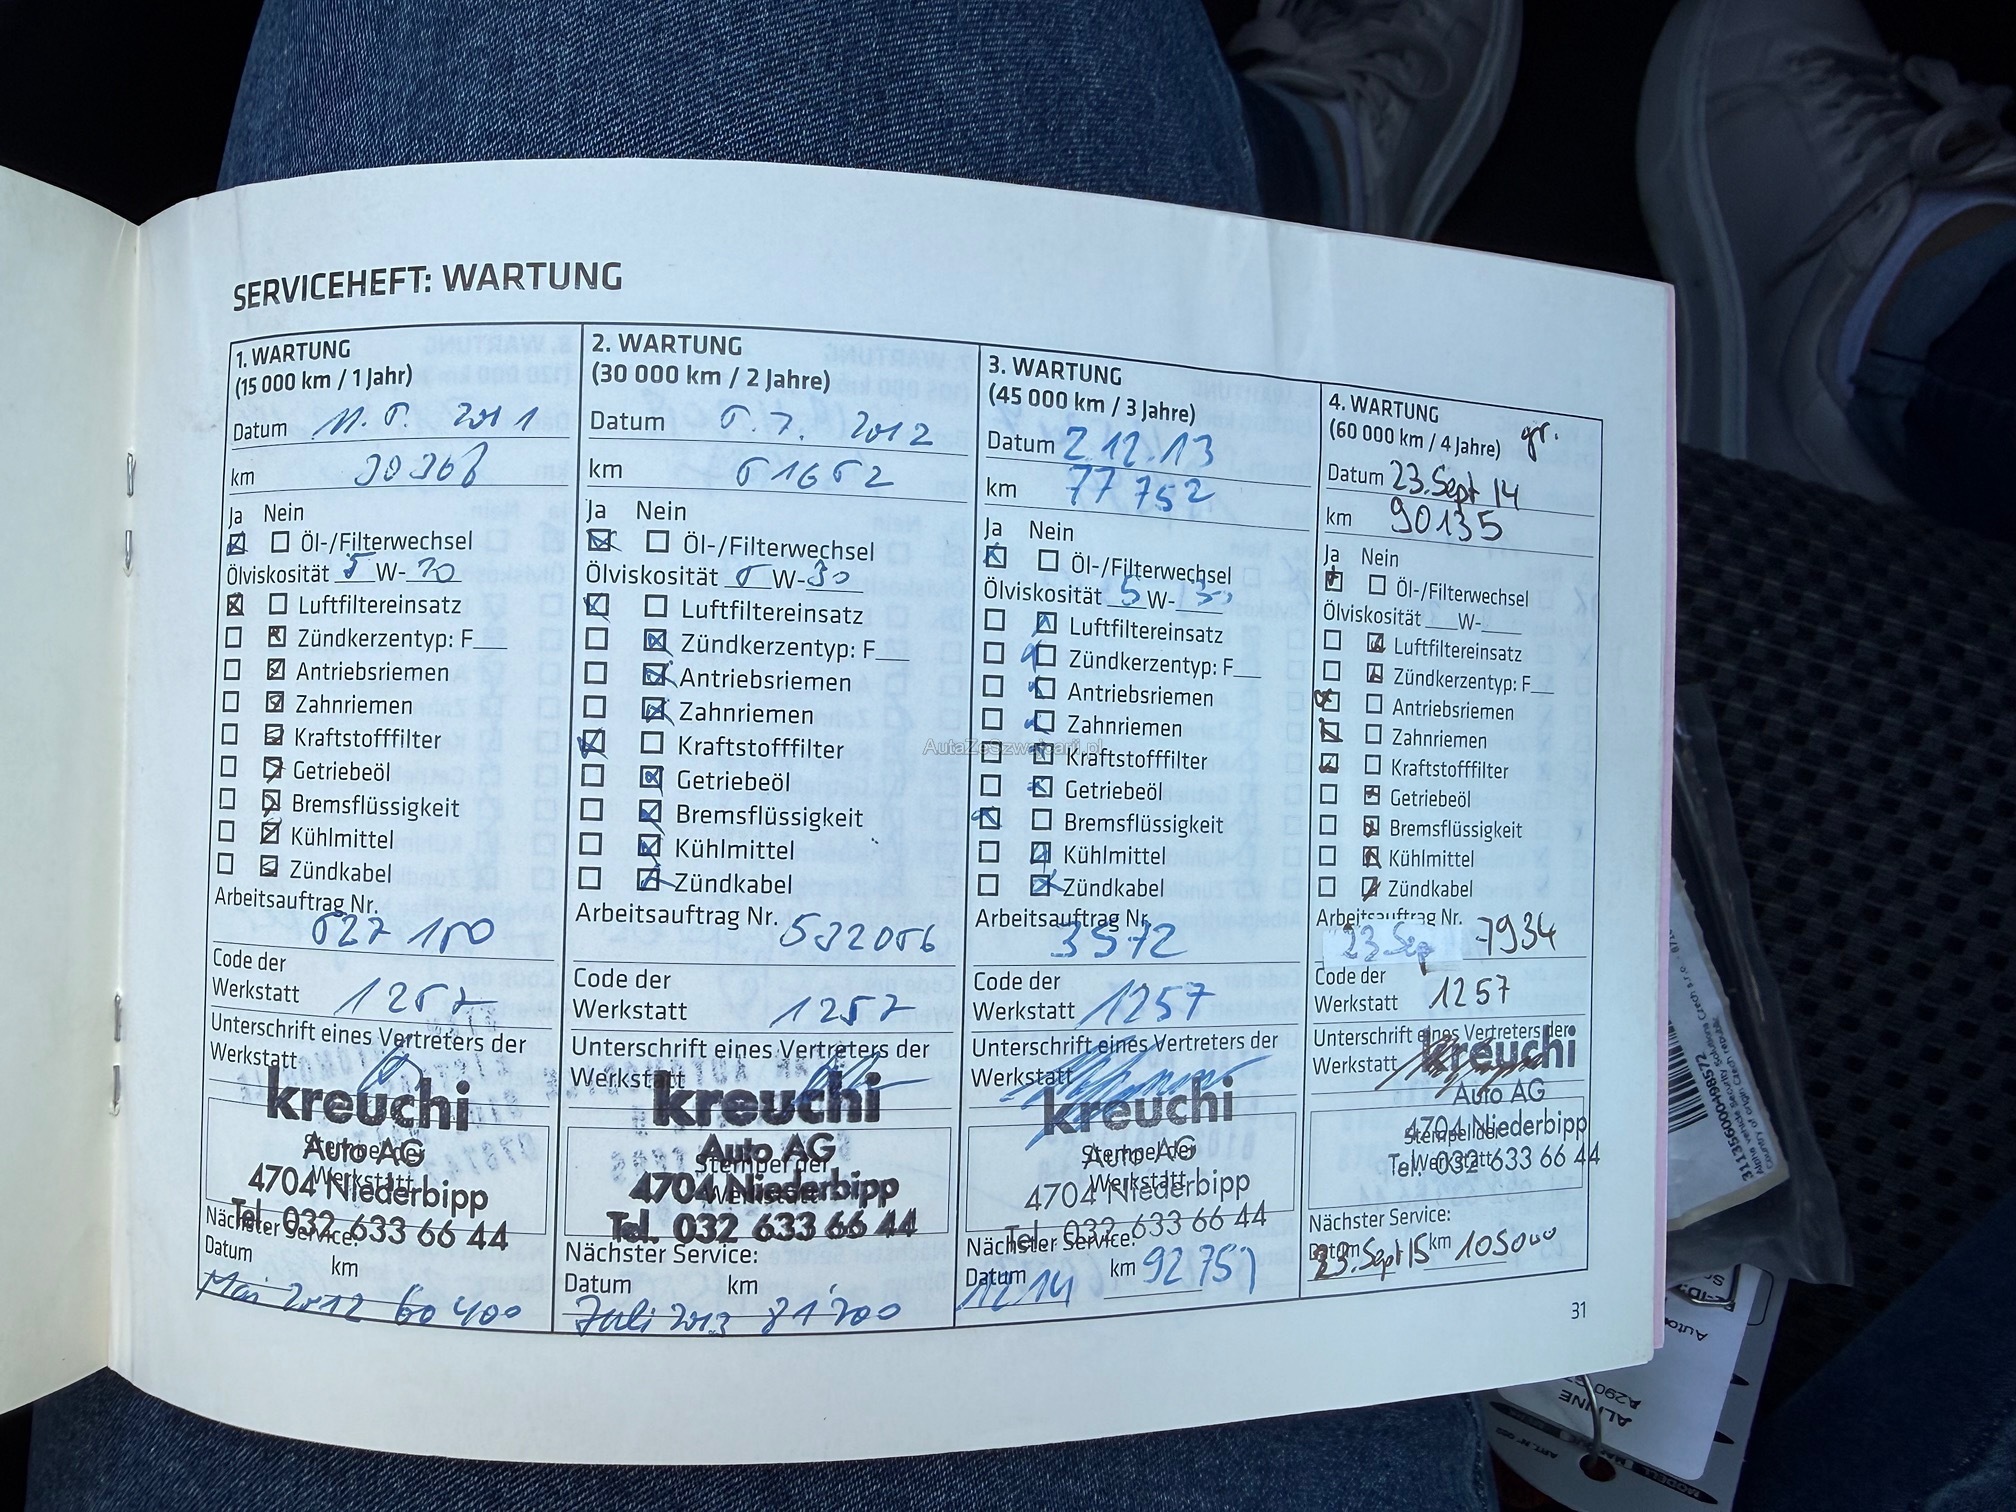 SERVICEHEFT: WARTUNG
1. WARTUNG
(15 000 km / 1 Jahr)
Datum 11. 5. 2011
km
Ja Nein
Öl-/Filterwechsel
Ölviskosität 5 W-30
Luftfiltereinsatz
Zündkerzentyp: F
Antriebsriemen
Zahnriemen
Kraftstofffilter
Getriebeöl
Bremsflüssigkeit
Kühlmittel
Zündkabel
Arbeitsauftrag Nr.
527 150
Code der
Werkstatt 1257
Unterschrift eines Vertreters der
Werkstatt
kreuchi
Auto AG
Stempel der
Werkstatt
4704 Niederbipp
Tel. 032 633 66 44
Nächster Service:
Datum km
Mai 2012 60 400
2. WARTUNG
(30 000 km / 2 Jahre)
Datum 5. 7. 2012
km 51652
Ja Nein
Öl-/Filterwechsel
Ölviskosität 5 W-30
Luftfiltereinsatz
Zündkerzentyp: F
Antriebsriemen
Zahnriemen
Kraftstofffilter
Getriebeöl
Bremsflüssigkeit
Kühlmittel
Zündkabel
Arbeitsauftrag Nr. 532056
Code der
Werkstatt 1257
Unterschrift eines Vertreters der
Werkstatt
kreuchi
Auto AG
Stempel der
Werkstatt
4704 Niederbipp
Tel. 032 633 66 44
Nächster Service:
Datum km
Juli 2013 81'700
3. WARTUNG
(45 000 km / 3 Jahre)
Datum 2.12.13
km 77 752
Ja Nein
Öl-/Filterwechsel
Ölviskosität 5 W-30
Luftfiltereinsatz
Zündkerzentyp: F
Antriebsriemen
Zahnriemen
Kraftstofffilter
Getriebeöl
Bremsflüssigkeit
Kühlmittel
Zündkabel
Arbeitsauftrag Nr.
3572
Code der
Werkstatt 1257
Unterschrift eines Vertreters der
Werkstatt
kreuchi
Auto AG
Stempel der
Werkstatt
4704 Niederbipp
Tel. 032 633 66 44
Nächster Service:
Datum 12.14 km 92 751
4. WARTUNG
(60 000 km / 4 Jahre) gr.
Datum 23. Sept 14
km 90135
Ja Nein
Öl-/Filterwechsel
Ölviskosität W-
Luftfiltereinsatz
Zündkerzentyp: F
Antriebsriemen
Zahnriemen
Kraftstofffilter
Getriebeöl
Bremsflüssigkeit
Kühlmittel
Zündkabel
Arbeitsauftrag Nr. 7934
23. Sep
Code der
Werkstatt 1257
Unterschrift eines Vertreters der
Werkstatt
kreuchi
Auto AG
4704 Niederbipp
Stempel der
Werkstatt
Tel. 032 633 66 44
Nächster Service:
Datum 23. Sept 15 km 105000
31
AutaZeSzwajcarii.pl
311356000498572
ALPINE
A290
MODELL